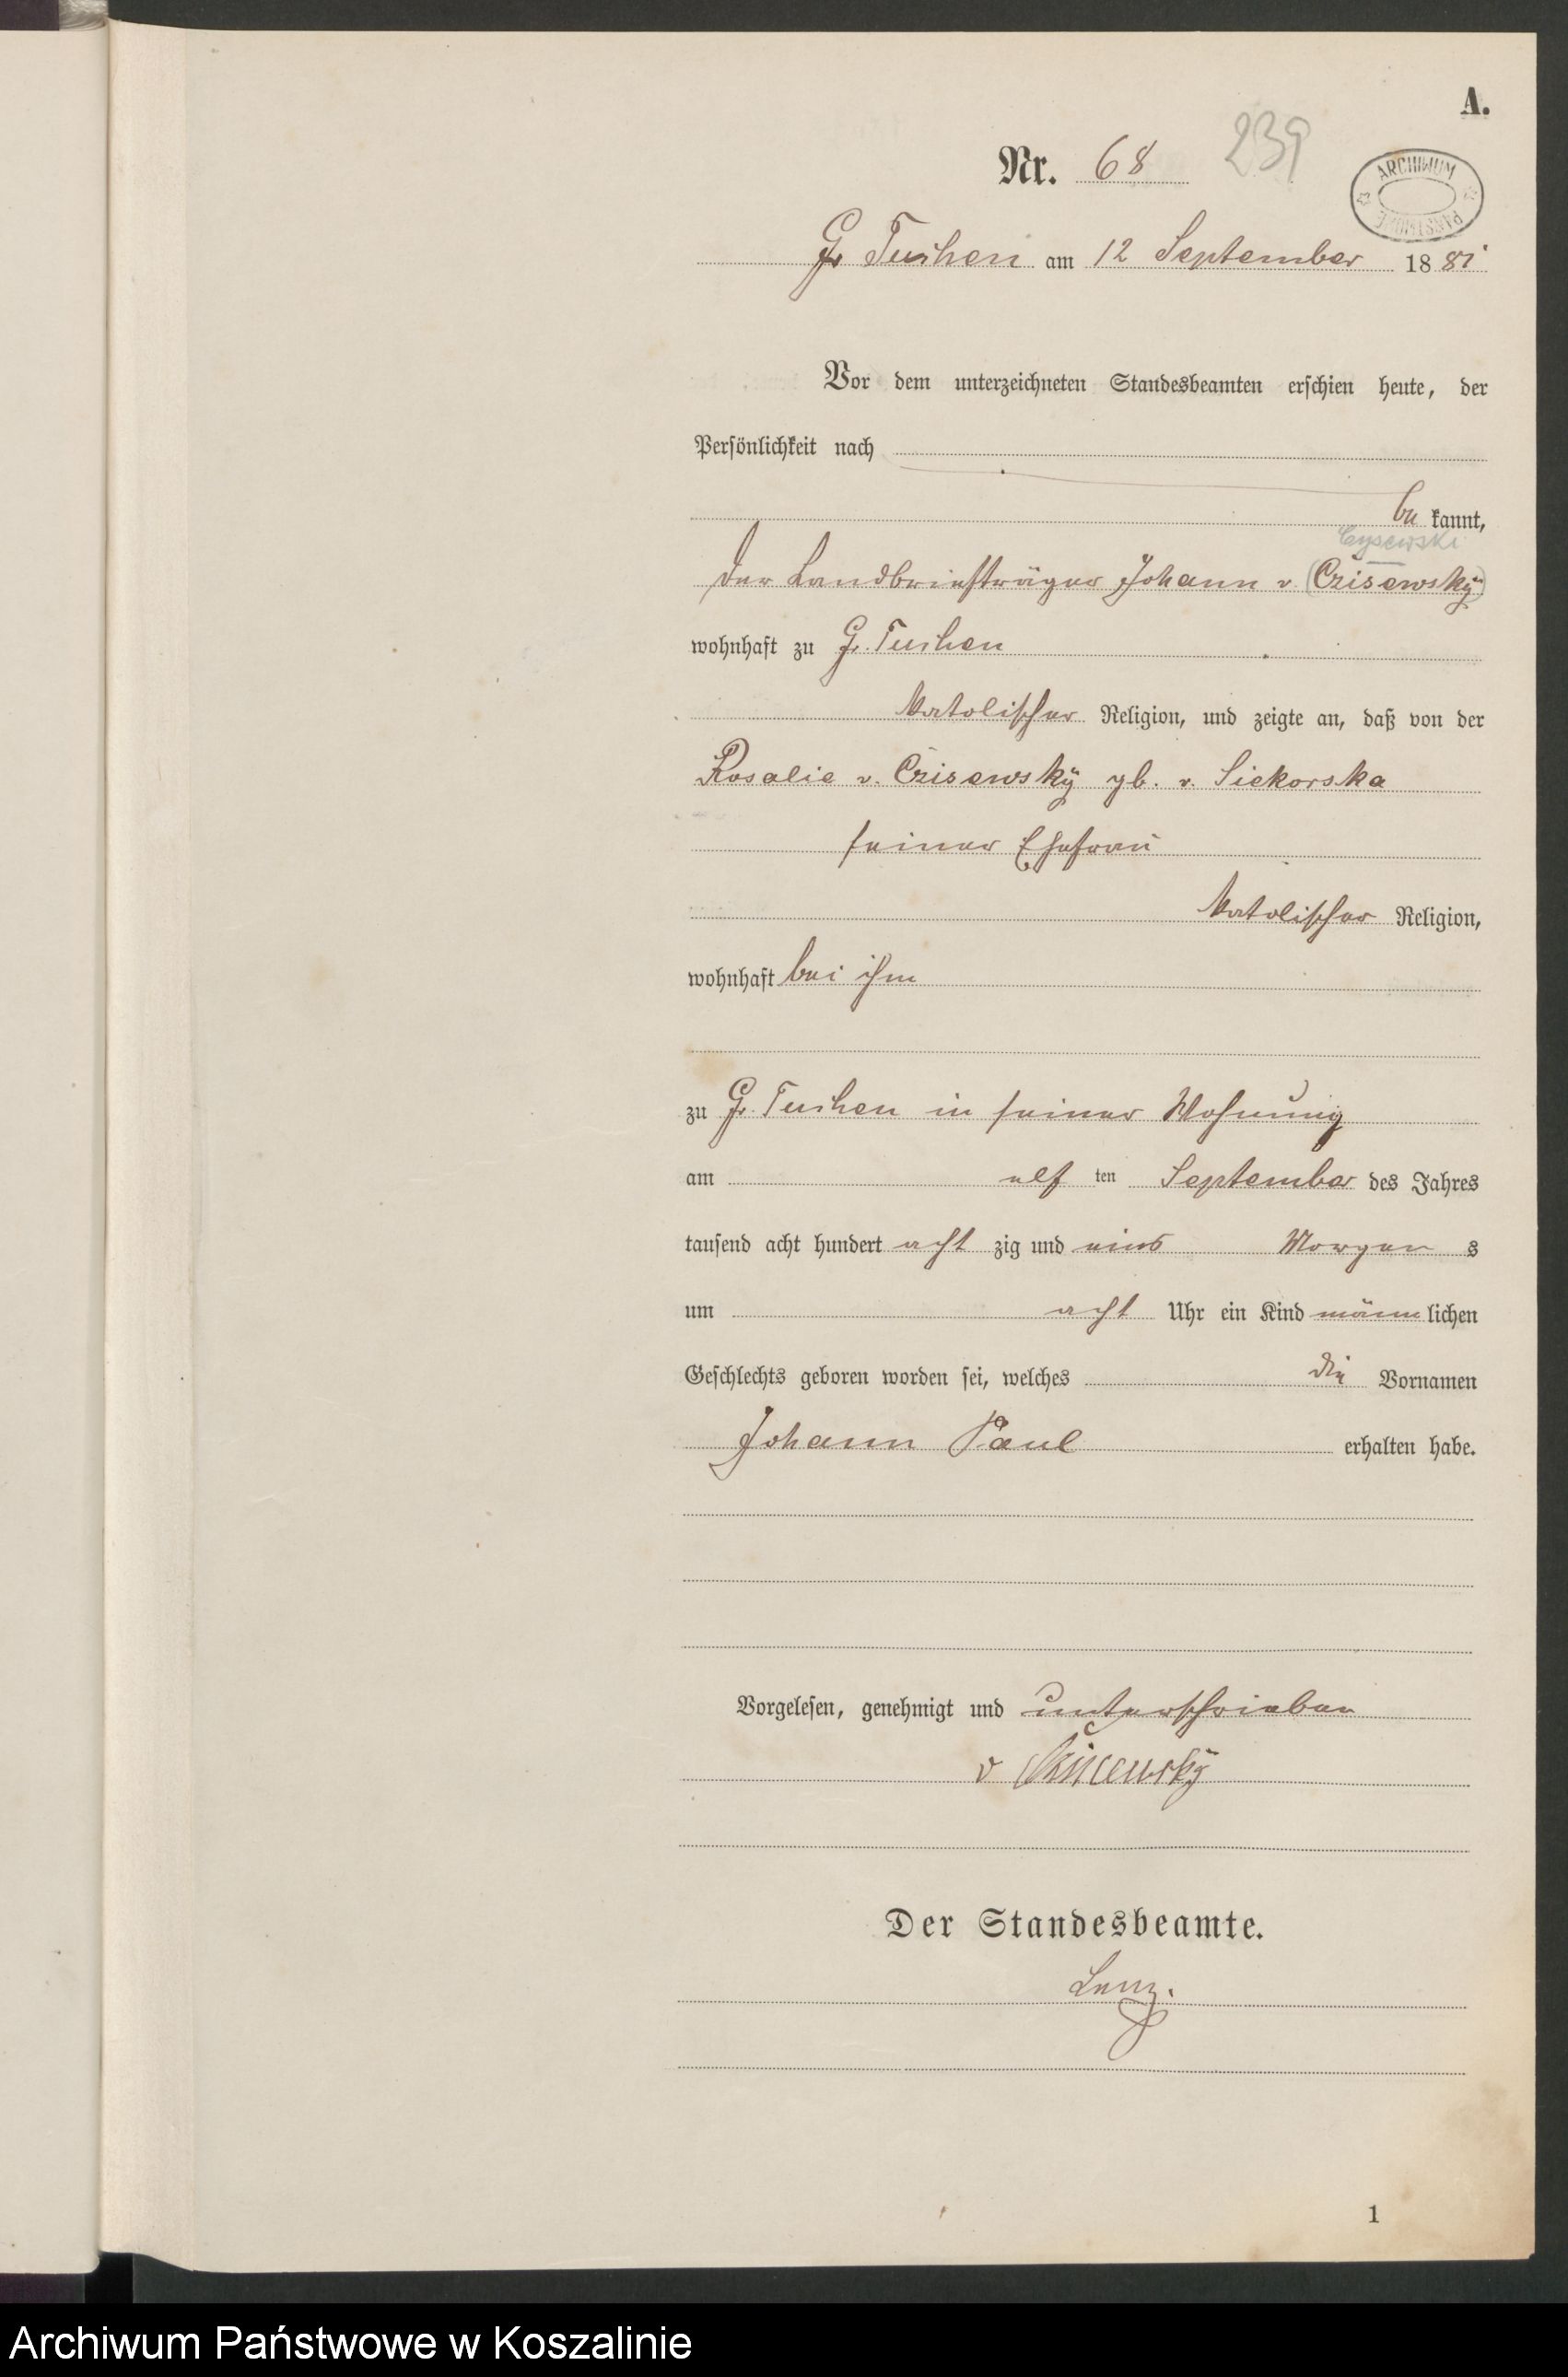 A.
Nr. 68 239
ARCHIWUM PAŃSTWOWE
Gr Tuchen am 12 September 1881
Vor dem unterzeichneten Standesbeamten erschien heute, der
Persönlichkeit nach
be kannt,
Cysewski
der Landbriefträger Johann v. (Czisewskÿ)
wohnhaft zu Gr. Tuchen
katolischer Religion, und zeigte an, daß von der
Rosalie v. Czisewskÿ gb. v. Siekorska
seiner Ehefrau
katolischer Religion,
wohnhaft bei ihm
zu Gr. Tuchen in seiner Wohnung
am elf ten September des Jahres
tausend acht hundert acht zig und eins Morgen s
um acht Uhr ein Kind männ lichen
Geschlechts geboren worden sei, welches die Vornamen
Johann Paul erhalten habe.
Vorgelesen, genehmigt und unterschrieben
v Czisewskÿ
Der Standesbeamte.
Lenz.
1
Archiwum Państwowe w Koszalinie